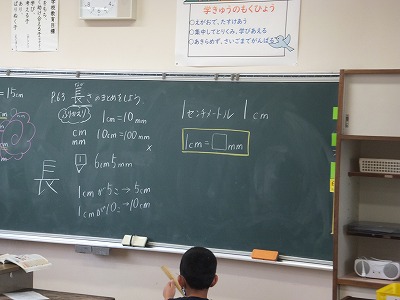 学きゅうのもくひょう
○えがおで、たすけあう
○集中してとりくみ、学びあえる
○あきらめず、さいごまでがんばる
= 15cm
P.63 長さのまとめをしよう。
ふりかえり
1cm = 10mm
cm 10cm = 100mm
mm
x
1 6cm5mm
長
1cmが5こ→5cm
1cmが10こ→10cm
1センチメートル 1cm
1cm = □mm